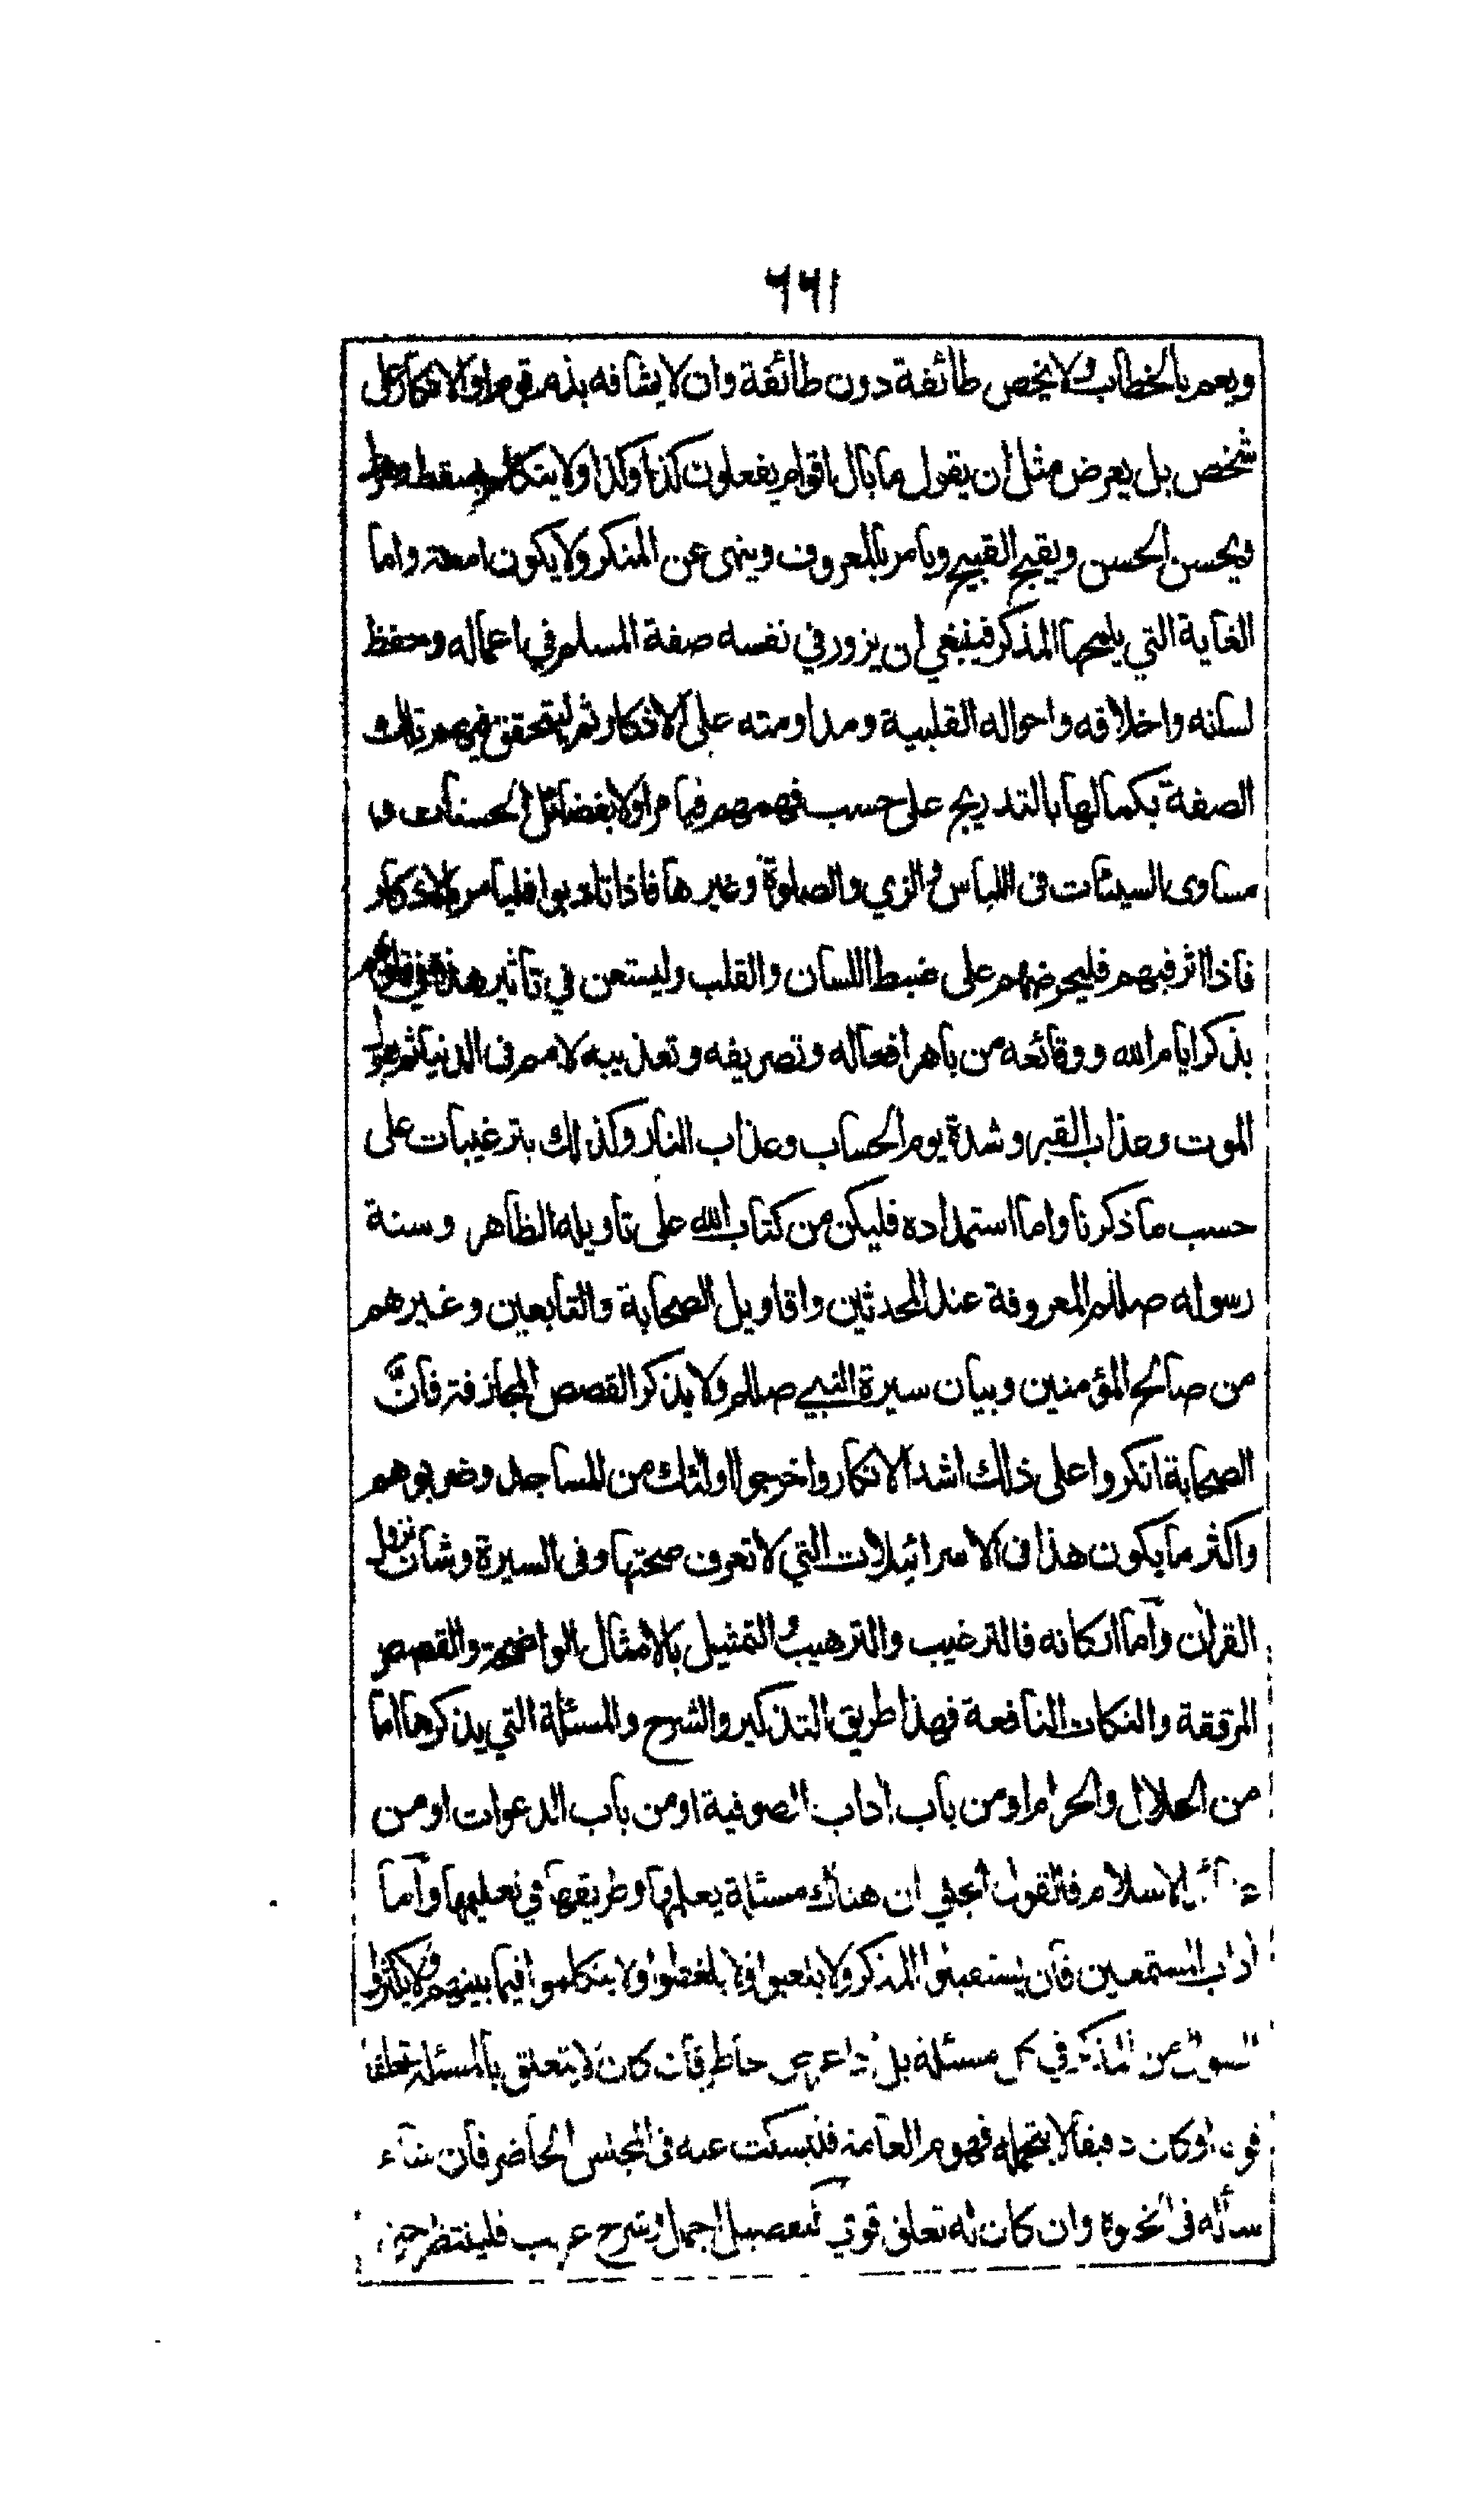 ٦٦١
ويعم بالخطاب ولا يخص طائفة دون طائفة وان لا يشافه بذم قوم او الانكار على
شخص بل يعرض مثل ان يقول ما بال اقوام يفعلون كذا وكذا ولا يتكلم بسقط وهزل
ويحسن الحسن ويقبح القبيح ويامر بالمعروف وينهى عن المنكر ولا يكون امعة واما
الغاية التي يلمحها المذكر فينبغي ان يزور في نفسه صفة المسلم في اعماله وحفظ
لسانه واخلاقه واحواله القلبية ومداومته على الاذكار ثم ليتحقق فيهم تلك
الصفة بكمالها بالتدريج على حسب فهمهم فيامر اولا بفضائل الحسنات و
مساوى السيئات فى اللباس والزي والصلوة وغيرها فاذا تادبوا فليامر بالاذكار
فاذا اثر فيهم فليحرضهم على ضبط اللسان والقلب وليستعن في تاثير هذه في قلوبهم
بذكر ايام الله ووقائعه من باهر افعاله وتصريفه وتعذيبه لامم فى الدنيا ثم بهول
الموت وعذاب القبر وشدة يوم الحساب وعذاب النار وكذلك بترغيبات على
حسب ما ذكرنا واما استمداده فليكن من كتاب الله على تاويله الظاهر وسنة
رسوله صللم المعروفة عند المحدثين واقاويل الصحابة والتابعين وغيرهم
من صالح المؤمنين وبيان سيرة النبي صللم ولا يذكر القصص المجازفة فانّ
الصحابة انكروا على ذلك اشد الانكار واخرجوا اولئك من المساجد وضربوهم
واكثر ما يكون هذا فى الاسرائيلات التي لا تعرف صحتها وفى السيرة وشان نزول
القران وآما اركانه فالترغيب والترهيب والتمثيل بالامثال الواضحة والقصص
المرققة والنكات النافعة فهذا طريق التذكير والشرح والمسئلة التي يذكرها اما
من الحلال والحرام او من باب اداب الصوفية او من باب الدعوات او من
الاسلام فالقول الجلي ان هناك مسئلة يعلمها وطريقها في تعليمها وآما
اداب المستمعين فان يستقبلوا المذكر ولا يلعبوا ولا يلغطوا ولا يتكلموا فيما بينهم ولا يكثروا
السوال من المذكر في كل مسئلة بل خاطر فان كان لا يتعلق بالمسئلة تعلقا
او كان دقيقا لا يتحمله فهوم العامة فليسكت عنه فى المجلس الحاضر فان شاء
سأله فى الخلوة وان كان له تعلق قوي كتفصيل اجمال وشرح غريب فلينتظر حين